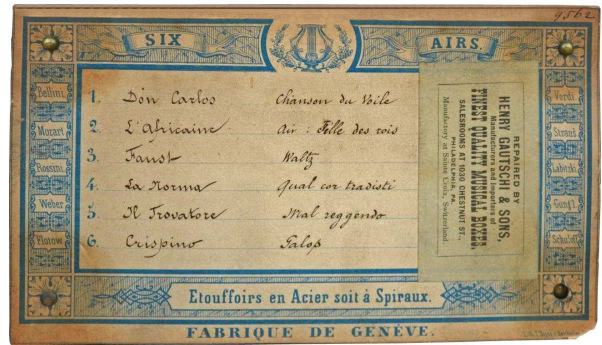 9562
SIX AIRS.
Bellini.
Mozart
Rossini
Weber
Flotow
1. Don Carlos Chanson du Voile
2. L'Africaine Air : Fille des rois
3. Faust Waltz
4. La Norma Qual cor tradisti
5. Il Trovatore Mal reggendo
6. Crispino Galop
Verdi
Strauß
Labitzki
Gung'l
Schulhoff
REPAIRED BY
HENRY GAUTSCHI & SONS,
Manufacturers and Importers of
FINEST QUALITY MUSICAL BOXES.
SALESROOMS AT 1030 CHESTNUT ST.,
PHILADELPHIA, PA.
Manufactory at Sainte Croix, Switzerland.
Etouffoirs en Acier soit à Spiraux.
FABRIQUE DE GENÈVE.